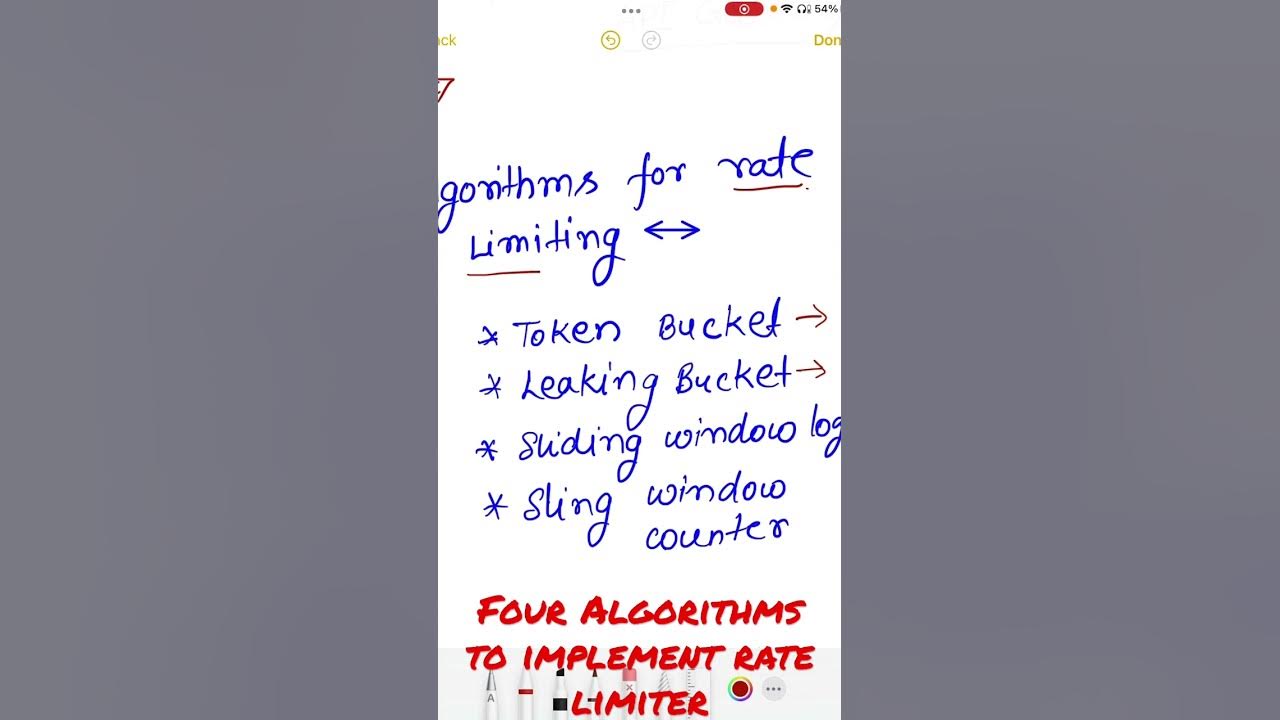 54%
ck
Don
gorithms for rate
Limiting ↔
* Token Bucket →
* Leaking Bucket →
* Sliding window log
* Sling window
counter
Four Algorithms
to implement rate
limiter